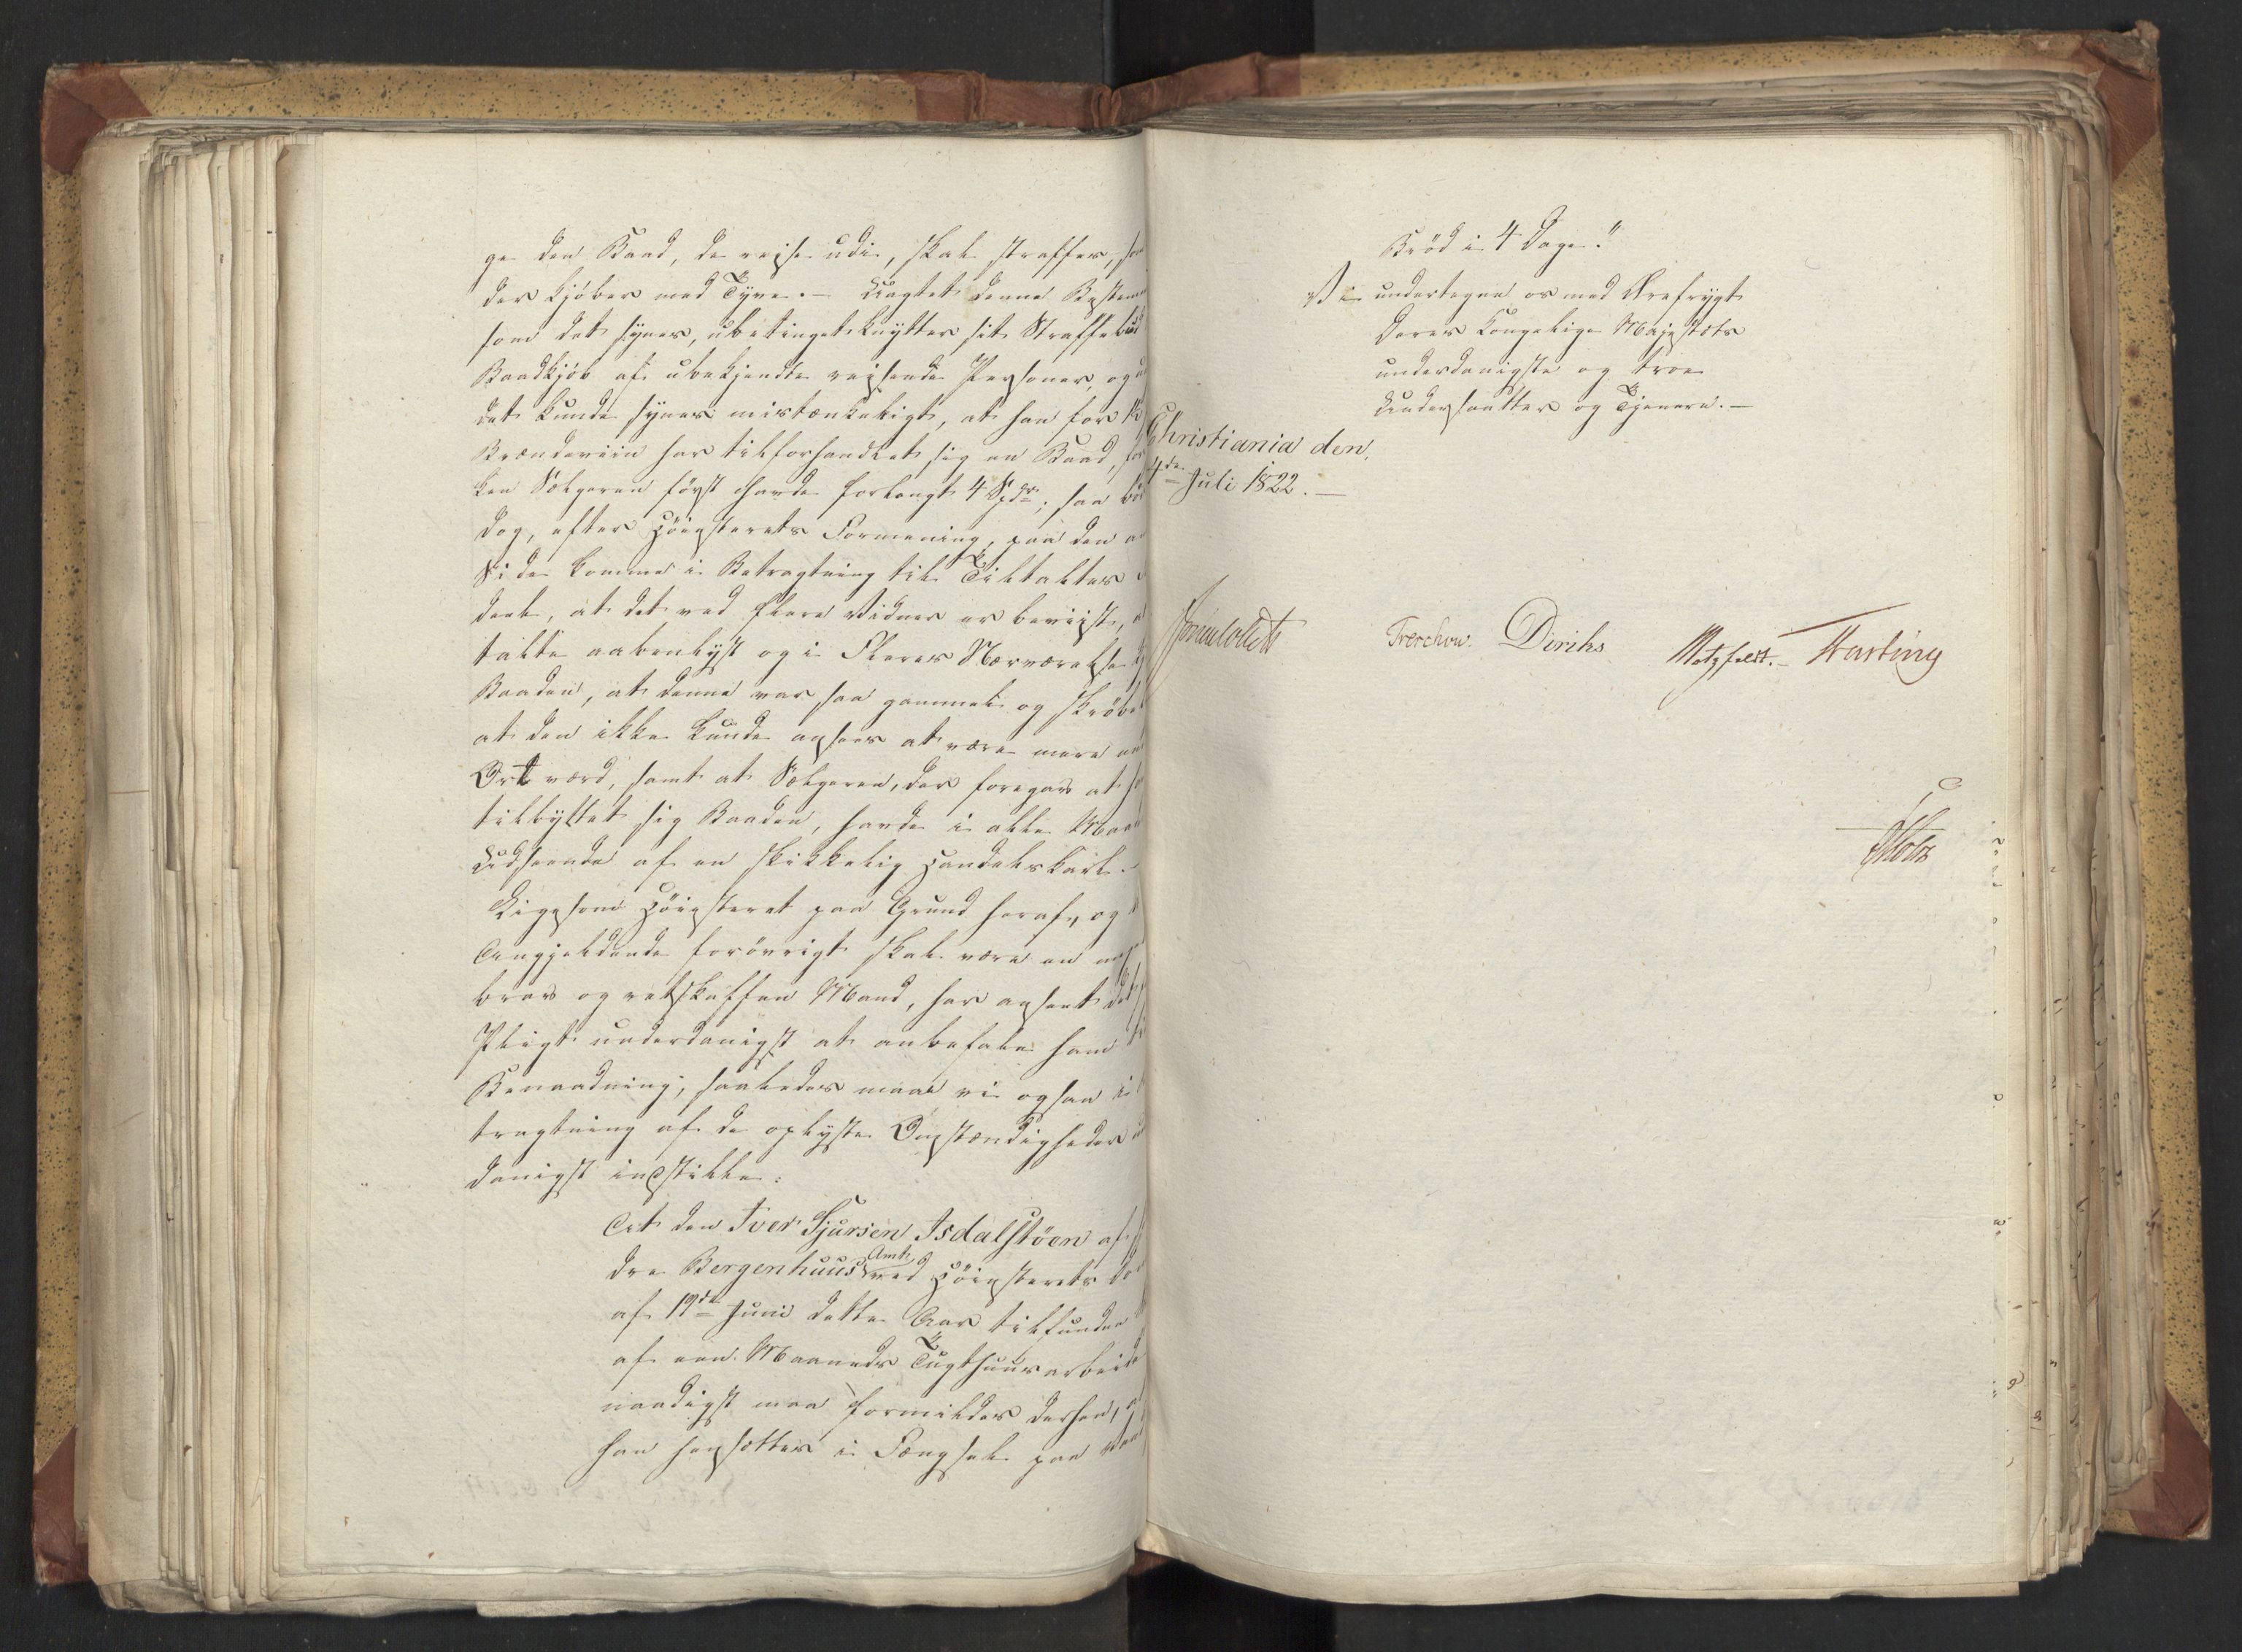 ge den Baad, de reise udi, skal straffes, som
der kjöber med Tyve. — Uagtet denne Bestem
som det synes, ubetinget knytter sit Straffebud
Baadkjöb af ubekjendte reisende Personer, og
det kunde synes mistænkeligt, at han for
Brændeviin har tilforhandlet sig en Baad, for
ken Sælgeren först havde forlangt 4 Spdr; saa bör
dog, efter Höiesterets Formening, paa den
Side komme i Betragtning til Tiltaltes
deel, at det ved flere Vidner er beviist,
talte aabenlyst og i Fleres Nærværelse
Baaden, at denne var saa gammel og skröbe
at den ikke kunde ansees at være mere
Ort værd, samt at Sælgeren, der foregav at
tilbyttet sig Baaden, havde i alle Maa
Udseende af en skikkelig Handelskarl. —
Ligesom Höiesteret paa Grund heraf, og
Angjeldende forövrigt skal være en
brav og retskaffen Mand, har anseet det
Pligt underdanigst at anbefale ham
Benaadning, saaledes maae vi ogsaa i
tragtning af de oplyste Omstændigheder
danigst indstille:
At den Iver Sjursen Isdalstöen af
dre Bergenhuus Amt ved Höiesterets
af 19de Juni dette Aar tilfundne
af een Maaneds Tugthuusarbeide
naadigst maa formildes derhen,
han hensættes i Fængsel paa Vand
Bröd i 4 Dage."
Vi undertegne os med Ærefrygt
Deres Kongelige Majestæts
underdanigste og troe
Undersaatter og Tjenere. —
Christiania den
4de Juli 1822. —
Sommerhielm Treschow. Diriks Motzfeldt. — Fasting
Holst